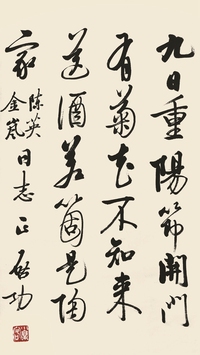 九日重陽節開門
有菊花不知来
送酒若箇是陶
家
陳英
金嵐
同志正
啟功